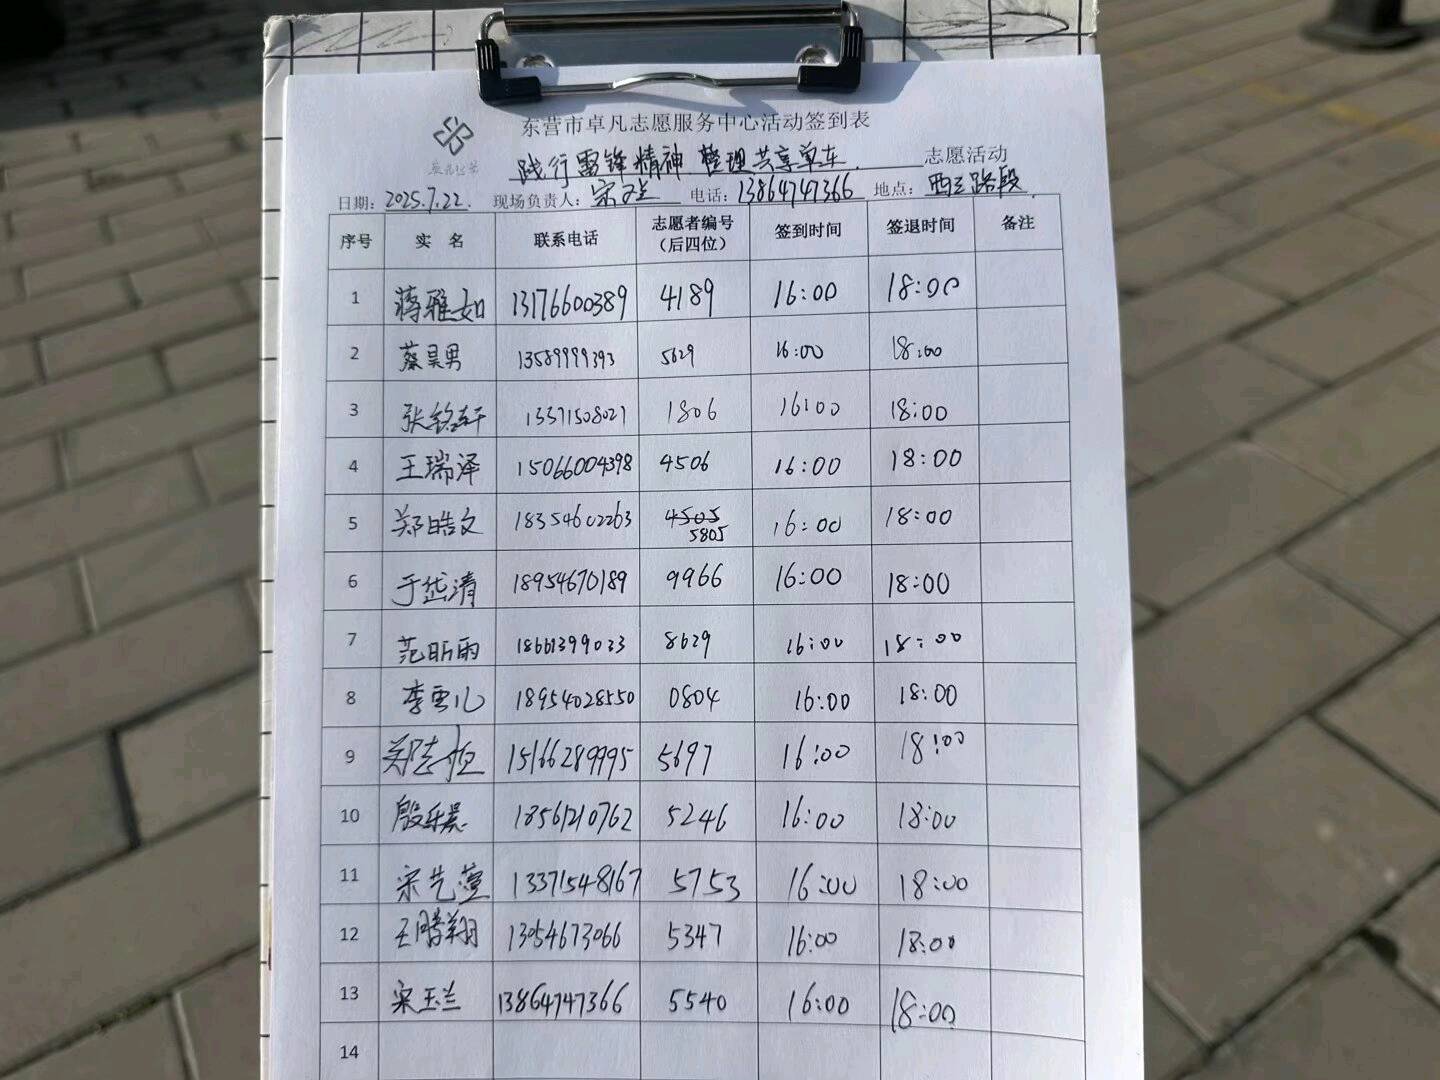 东营市卓凡志愿服务中心活动签到表
践行雷锋精神 整理共享单车 志愿活动
日期：2025.7.22. 现场负责人：宋玉兰 电话：13864747366 地点：西三路段
序号 实 名 联系电话 志愿者编号（后四位） 签到时间 签退时间 备注
1 蒋雅如 13176600389 4189 16:00 18:00
2 蔡昊男 13589999393 5629 16:00 18:00
3 张铭轩 13371508027 1806 16:00 18:00
4 王瑞泽 15066004398 4506 16:00 18:00
5 郑皓文 18354602263 4505 5805 16:00 18:00
6 于岱清 18954670189 9966 16:00 18:00
7 范昕雨 18661399033 8629 16:00 18:00
8 李雪儿 18954028550 0804 16:00 18:00
9 郑志恒 15166289995 5697 16:00 18:00
10 殷 18561210762 5246 16:00 18:00
11 宋艺萱 13371548167 5753 16:00 18:00
12 王腾翔 13054673066 5347 16:00 18:00
13 宋玉兰 13864747366 5540 16:00 18:00
14